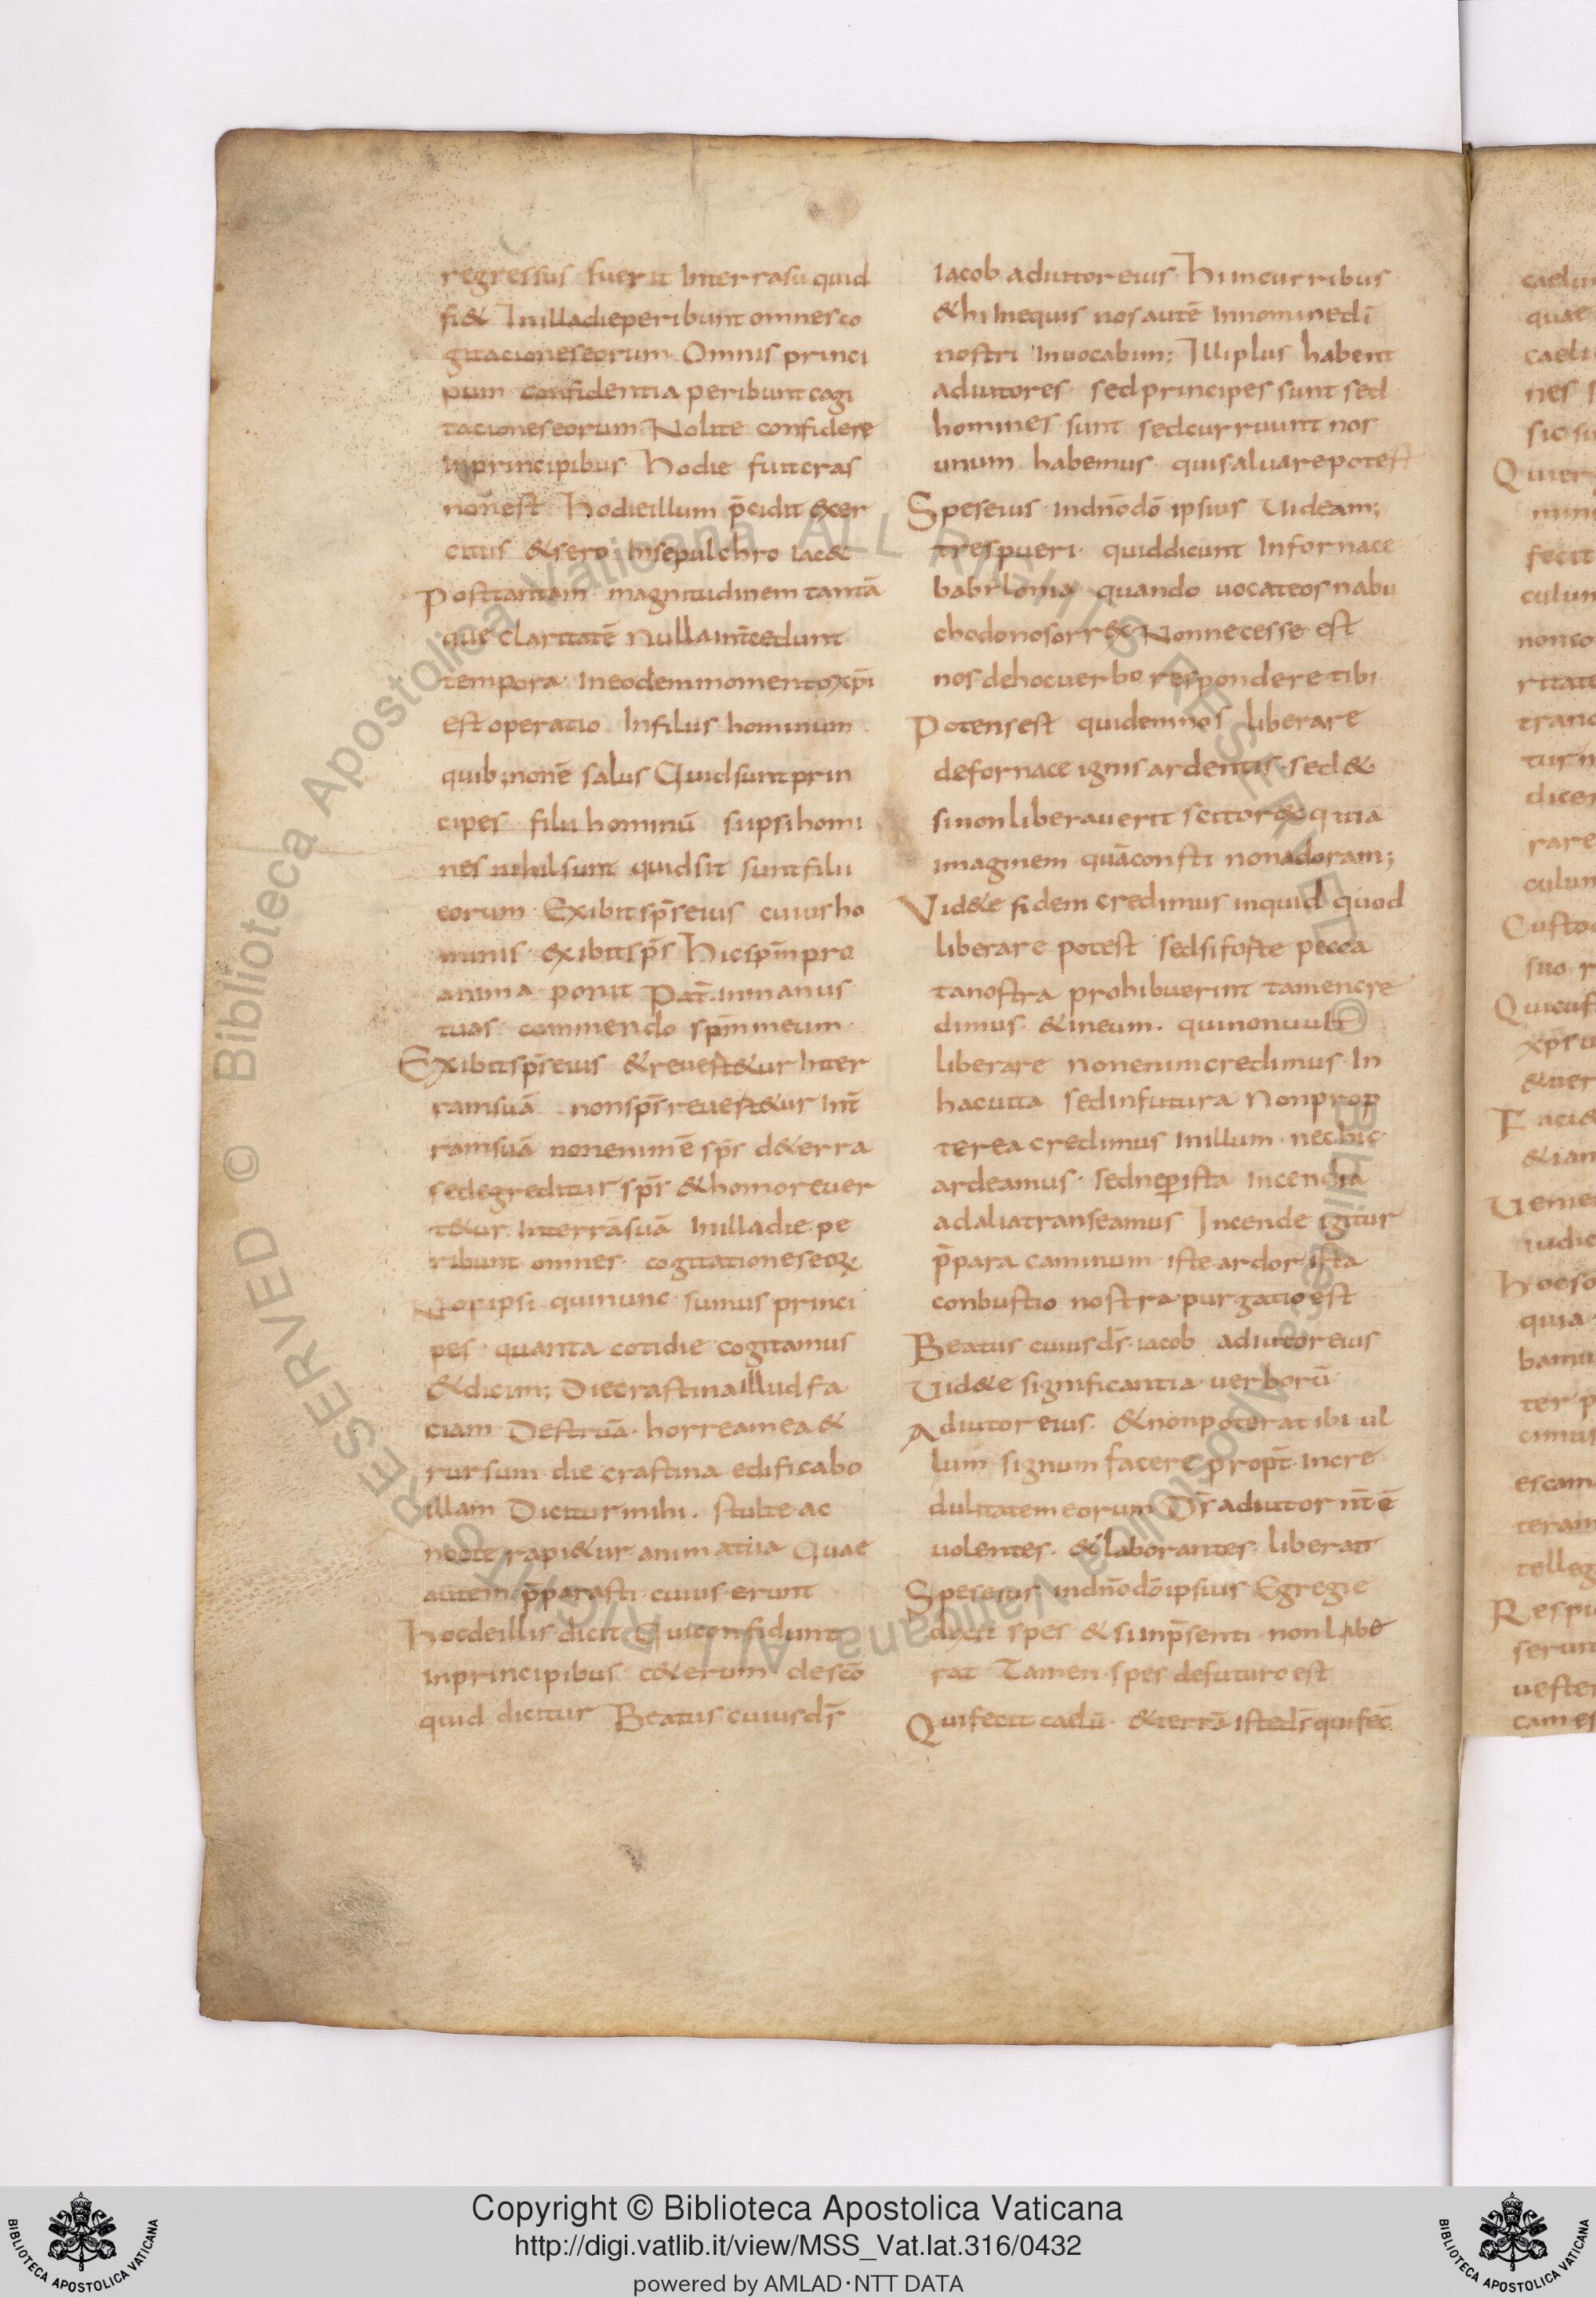 regressus fuerit Interrasū quid
fi& Inilladieperibunt omnesco
gitacioneseorum Omnis princi
pum confidentia peribunt cogi
tacioneseorum Nolite confidere
Inprincipibus hodie fuiteras
nonest hodieillum p̄cidit excer
citus &sero Insepulchro iac&
Posttantam magnitudinem tantā
que claritatē Nulla int̄cedunt
tempora Ineodemmomento xp̄i
estoperatio Infilius hominum
quib; nonē salus Quidsuntprin
cipes filii hominū siipsihomi
nes nihilsunt quidsit suntfilii
eorum Exibitsp̄seius cuiusho
minis exibitsp̄s hicsp̄mpro
anima ponit Pat̄ inmanus
tuas commendo sp̄mmeum
Exibitsp̄seius &reuert&ur Inter
ramsuā nonsp̄sreuert&ur Int̄
ramsuā nonenimē sp̄s d&erra
sedegreditur sp̄s &homoreuer
t&ur Interrāsuā Inilladie pe
ribunt omnes cogitationeseoꝝ
Nosipsi quinunc sumus princi
pes quanta cotidie cogitamus
&dicim; Diecrastinaillud fa
ciam Destruā horreamea &
rursum die crastina edificabo
illam Diciturmihi stulte ac
nocte rapi&ur animatua Quae
autem p̄parasti cuius erunt
hocdeillis dicit Quiconfidunt
inprincipibus c&erum descō
quid dicitur Beatus cuiusds̄
Iacob adiutoreius hiincurribus
&hi Inequis nosautē Innominedī
nostri Inuocabim; Illiplus habent
adiutores sedprincipes sunt sed
homines sunt sedcurruunt nos
unum habemus quisaluarepotest
Speseius indn̄odō ipsius Uideam;
trespueri quiddicunt Infornace
babylonia quando uocateos nabu
chodonosorrex Nonnecesse est
nosdehocuerbo respondere tibi
Potensest quidemnos liberare
defornace ignis ardentis sed&
sinonliberauerit scitorex quia
imaginem quāconsti nonadoram;
Vid&e fidem credimus inquid quod
liberare potest sedsifoste pecca
tanostra prohibuerint tamencre
dimus &ineum quinonuult
liberare nonenimcredimus In
hacuita sedinfutura Nonprop
terea credimus Inillum nechic
ardeamus sednep̄ista incendia
adaliatranseamus Incende igitur
p̄para caminum iste ardor ista
conbustio nostra purgatioest
Beatus cuiusds̄ iacob adiutoreius
Uid&e significantia uerborū
Adiutor eius &nonpoterat ibi ul
lum signum facere propt̄ Incre
dulitatem eorum Ds̄ adiutor nt̄ ē
uolentes &laborantes liberat
Speseius indn̄odōipsius Egregie
dixit spes &siinp̄senti nonlibe
rat Tamen spes defuturoest
Quifecit caelū &terrā isteds̄quifec̄
caelu
quae
caeli
nes s
sic si
Quier
fecit
culun
nonso
ritate
trano
tur n
dicer
rare
culun
Custo
suo r
Quicus
xp̄s
&uer
Faci&
&ian
Uenie
iudie
hocso
quia
bamu
ter p
escam
teram
telleg
Respu
serunt
uester
cames
Copyright © Biblioteca Apostolica Vaticana
http://digi.vatlib.it/view/MSS_Vat.lat.316/0432
powered by AMLAD·NTT DATA
BIBLIOTECA APOSTOLICA VATICANA
BIBLIOTECA APOSTOLICA VATICANA
© Biblioteca Apostolica Vaticana ALL RIGHTS RESERVED
© Biblioteca Apostolica Vaticana ALL RIGHTS RESERVED